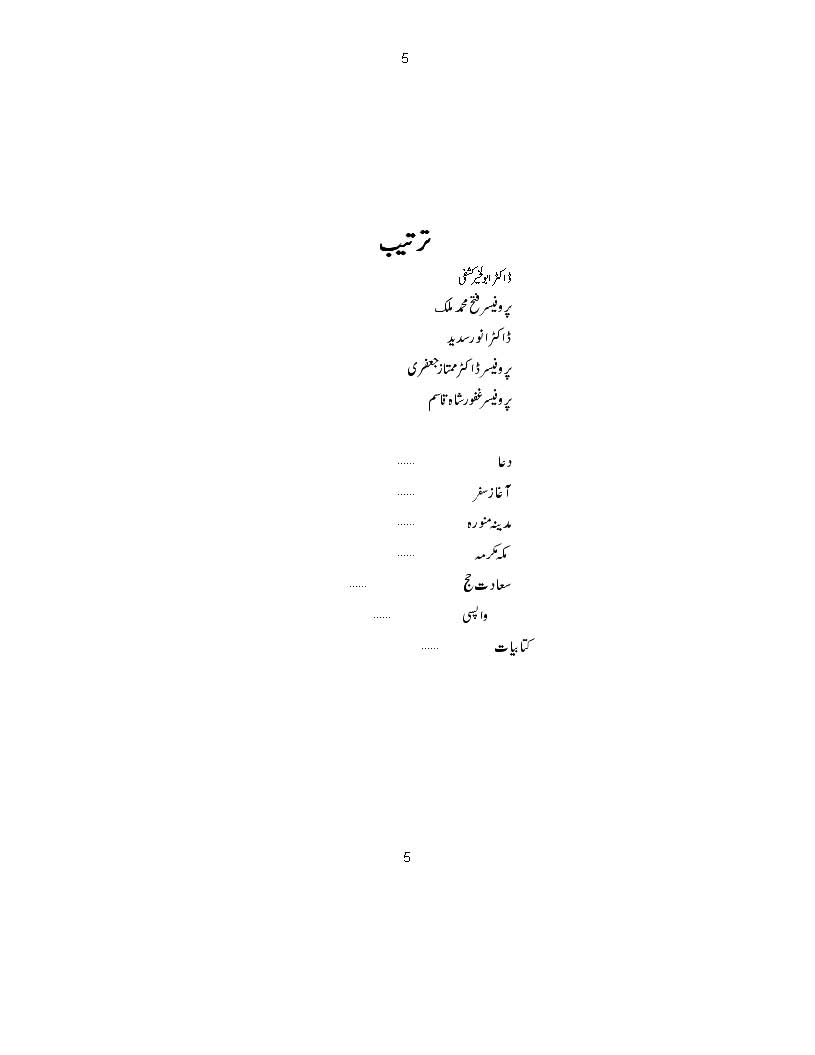 5
ترتیب
ڈاکٹر ابوالخیر کشفی
پروفیسر فتح محمد ملک
ڈاکٹر انور سدید
پروفیسر ڈاکٹر ممتاز جعفری
پروفیسر غفور شاہ قاسم
دعا ......
آغاز سفر ......
مدینہ منورہ ......
مکہ مکرمہ ......
سعادت حج ......
واپسی ......
کتابیات ......
5